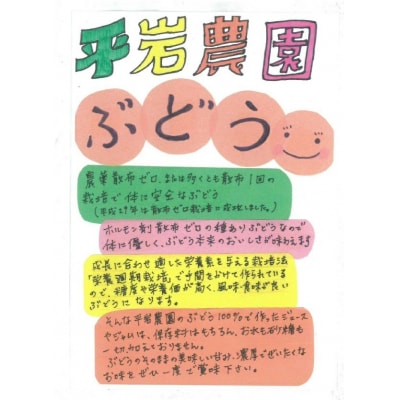 平岩農園
ぶどう
農薬散布ゼロ、または多くとも散布1回の
栽培で体に安全なぶどう
(平成29年は散布ゼロ栽培に成功しました)
ホルモン剤散布ゼロの種ありぶどうなので
体に優しく、ぶどう本来のおいしさが味わえます
成長に合わせ適した栄養素を与える栽培法
「栄養週期栽培」で手間をかけて作られている
ので、糖度や栄養価が高く、風味・食味が良い
ぶどうになります。
そんな平岩農園のぶどう100%で作ったジュース
やジャムは、保存料はもちろん、お水も砂糖も
一切加えておりません。
ぶどうのそのままの美味しい甘み、濃厚でぜいたくな
お味をぜひ一度ご賞味下さい。